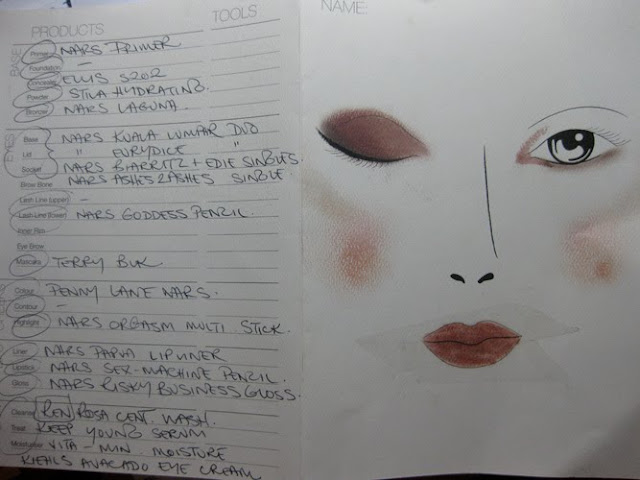 PRODUCTS TOOLS NAME
BASE
Primer NARS PRIMER
Foundation –
Concealer ELLIS S202
Powder STILA HYDRATING.
Bronzer NARS LAGUNA.
EYES
Base NARS KUALA LUMPAR DUO
Lid " EURYDICE "
Socket NARS BIARRITZ + EDIE SINGLES.
Brow Bone NARS ASHES 2 ASHES SINGLE
Lash Line (upper) –
Lash Line (lower) NARS GODDESS PENCIL.
Inner Rim
Eye Brow
Mascara TERRY BLK
Colour PENNY LANE NARS.
Contour –
Highlight NARS ORGASM MULTI STICK.
Liner NARS PAPUA LIPLINER
Lipstick NARS SEX-MACHINE PENCIL.
Gloss NARS RISKY BUSINESS GLOSS.
Cleanse REN ROSA CENT. WASH.
Treat KEEP YOUNG SERUM
Moisturise VITA-MIN. MOISTURE
KIEHLS AVACADO EYE CREAM